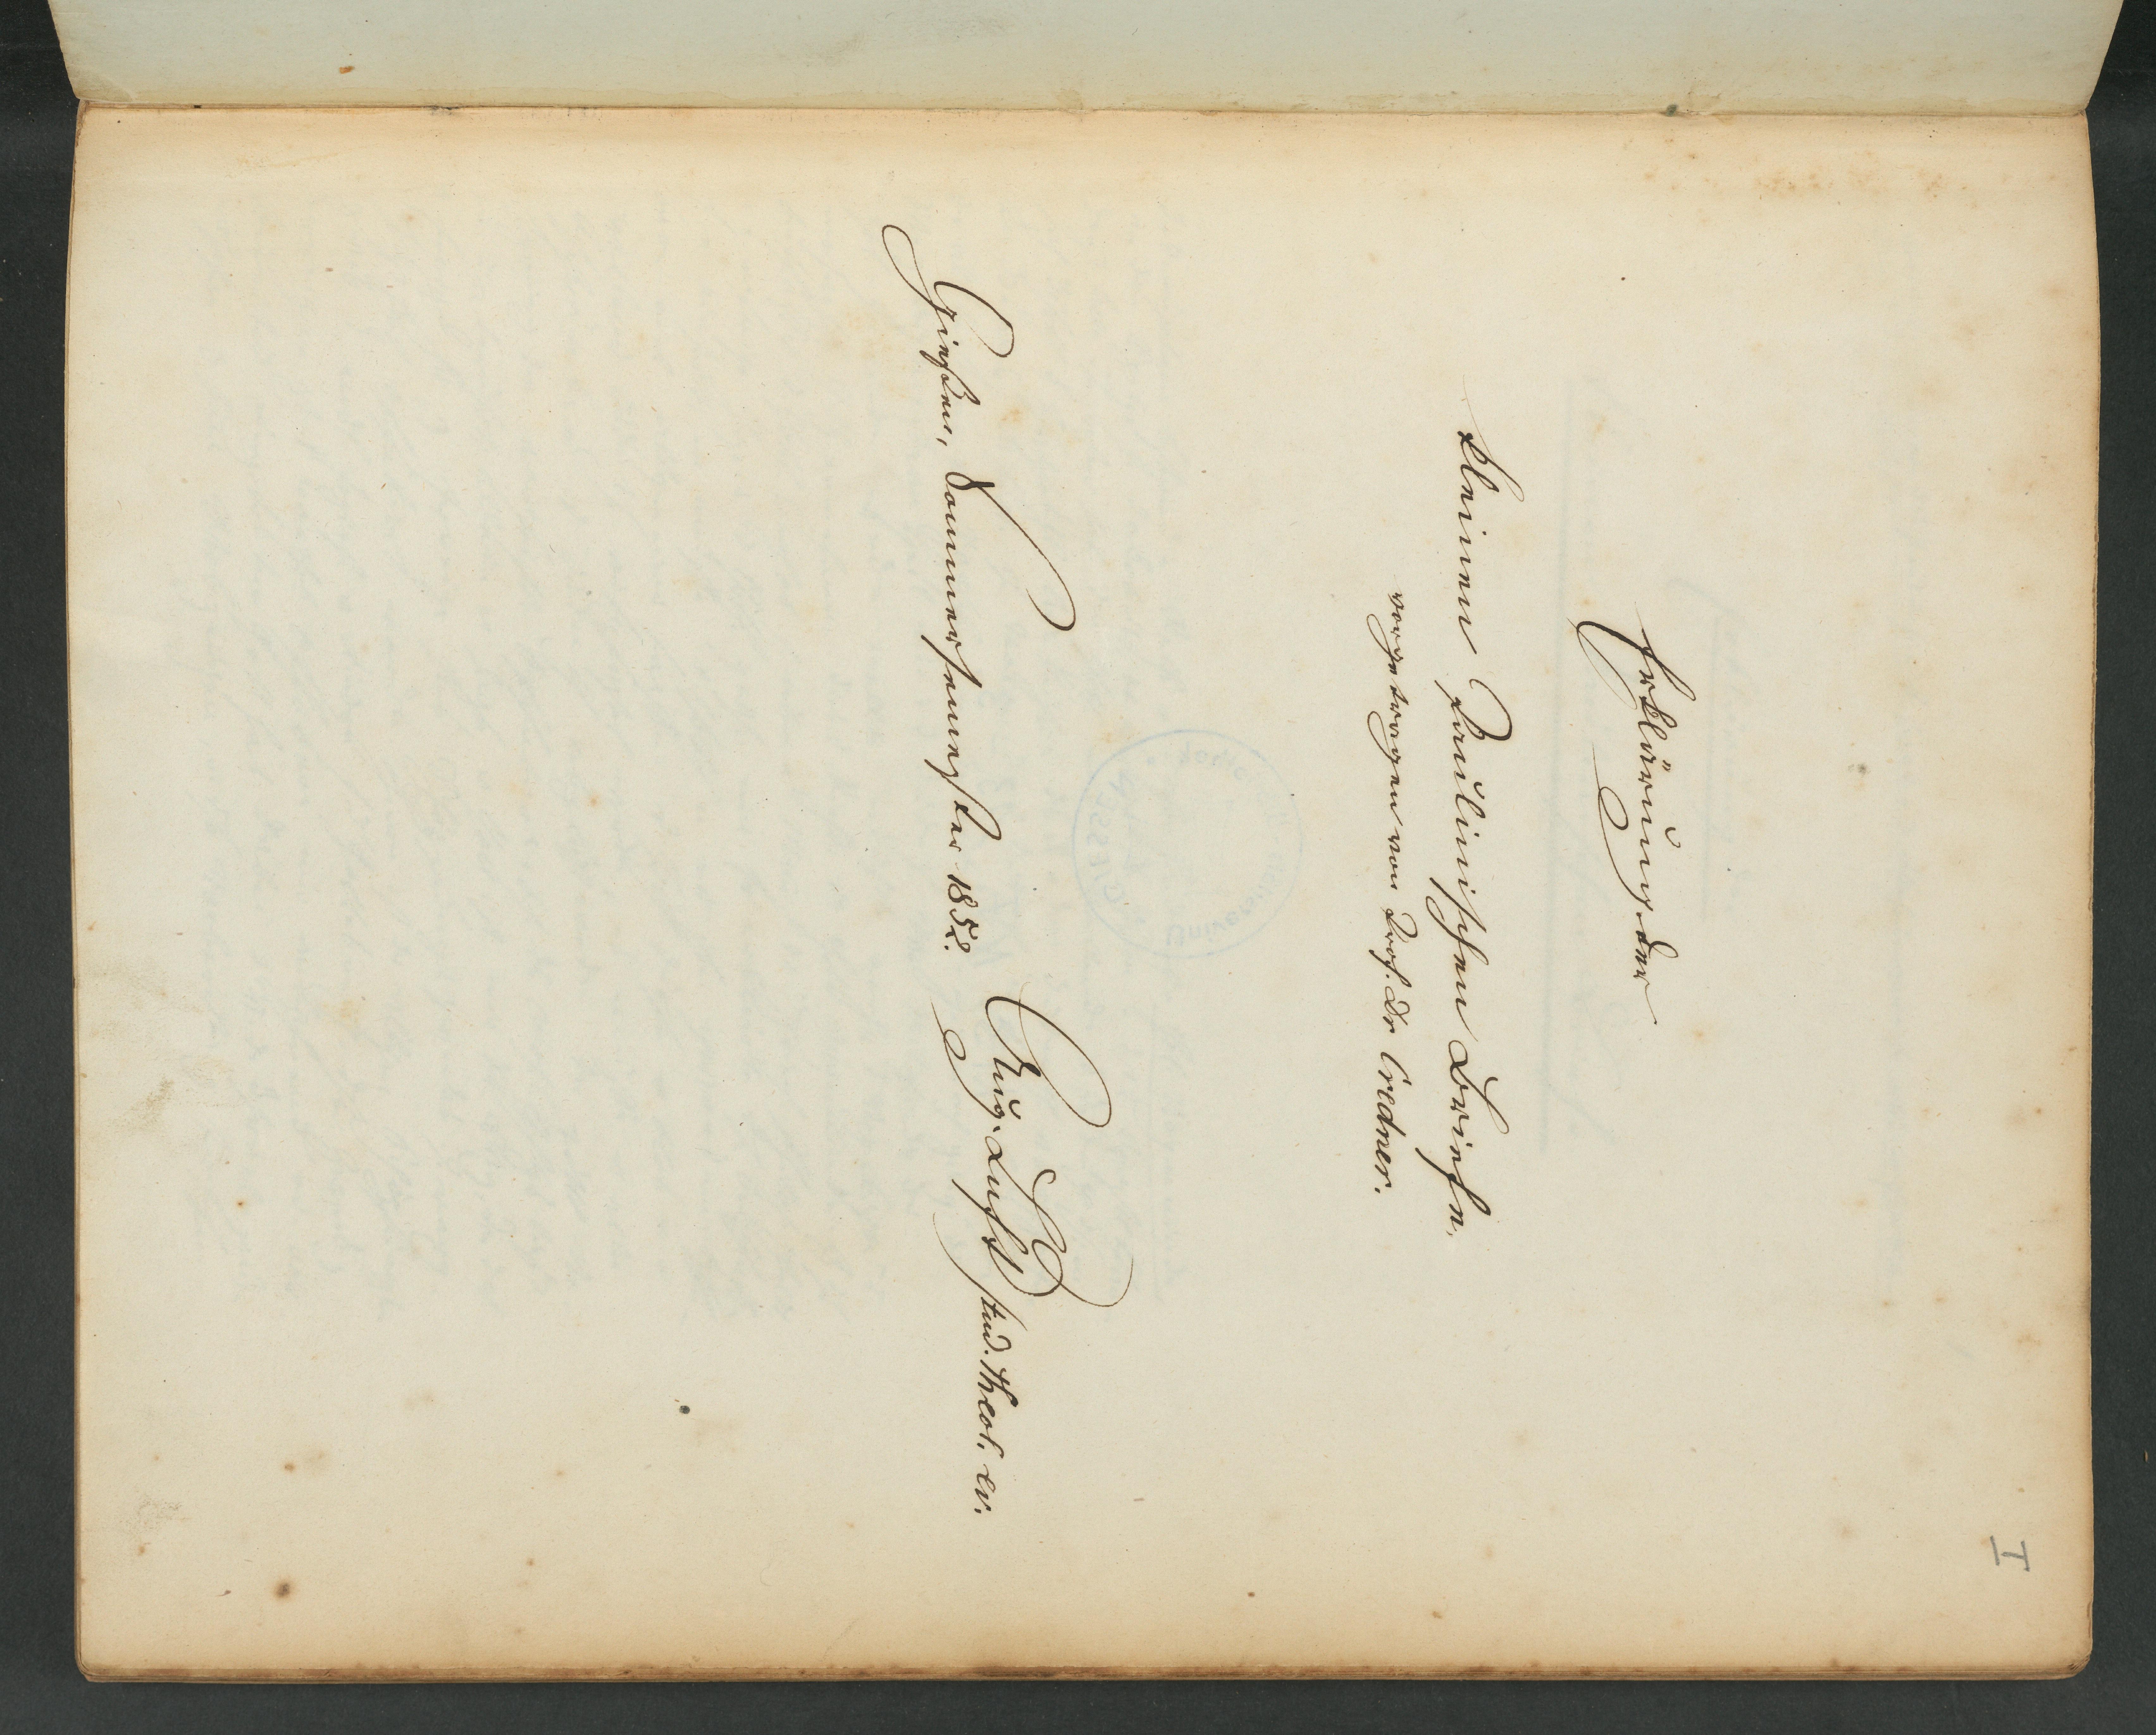 I
Erklärung der
kleinen Paulinischen Briefe,
vorgetragen von Prof. Dr Credner.
Giessen, Sommersemester 1852.
Aug. Lufft stud. theol. ev.
Universit
GIESSEN